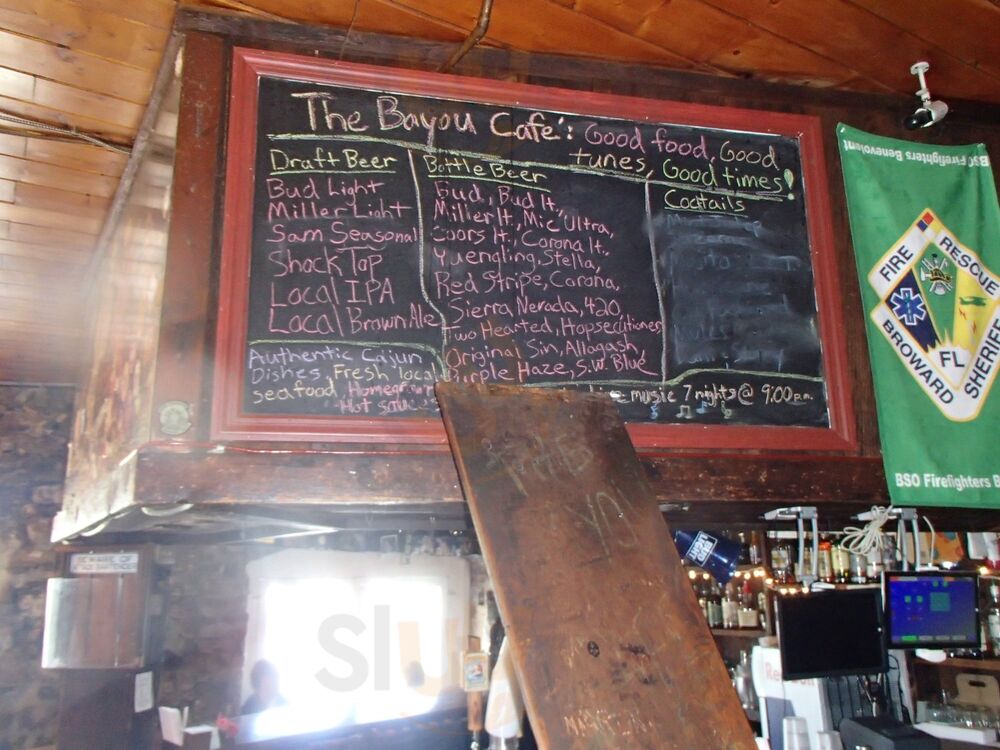 The Bayou Cafe': Good food, Good
tunes, Good times!
Draft Beer
Bud Light
Miller Light
Sam Seasonal
Shock Top
Local IPA
Local Brown Ale
Bottle Beer
Bud, Bud lt,
Miller lt, Mic Ultra,
Coors lt., Corona lt.,
Yuengling, Stella,
Red Stripe, Corona,
Sierra Nevada, 420,
Two Hearted, Hopsecutioner
Original Sin, Allagash
Purple Haze, S.W. Blue
Cocktails
Authentic Cajun
Dishes, Fresh local
seafood Homegrown
Hot sauce
music 7 nights @ 9:00 p.m.
BSO Firefighters Benevolent
FIRE RESCUE
BROWARD SHERIFF
FL
BSO Firefighters B
BEWARE OF
BUD
LIGHT
slu